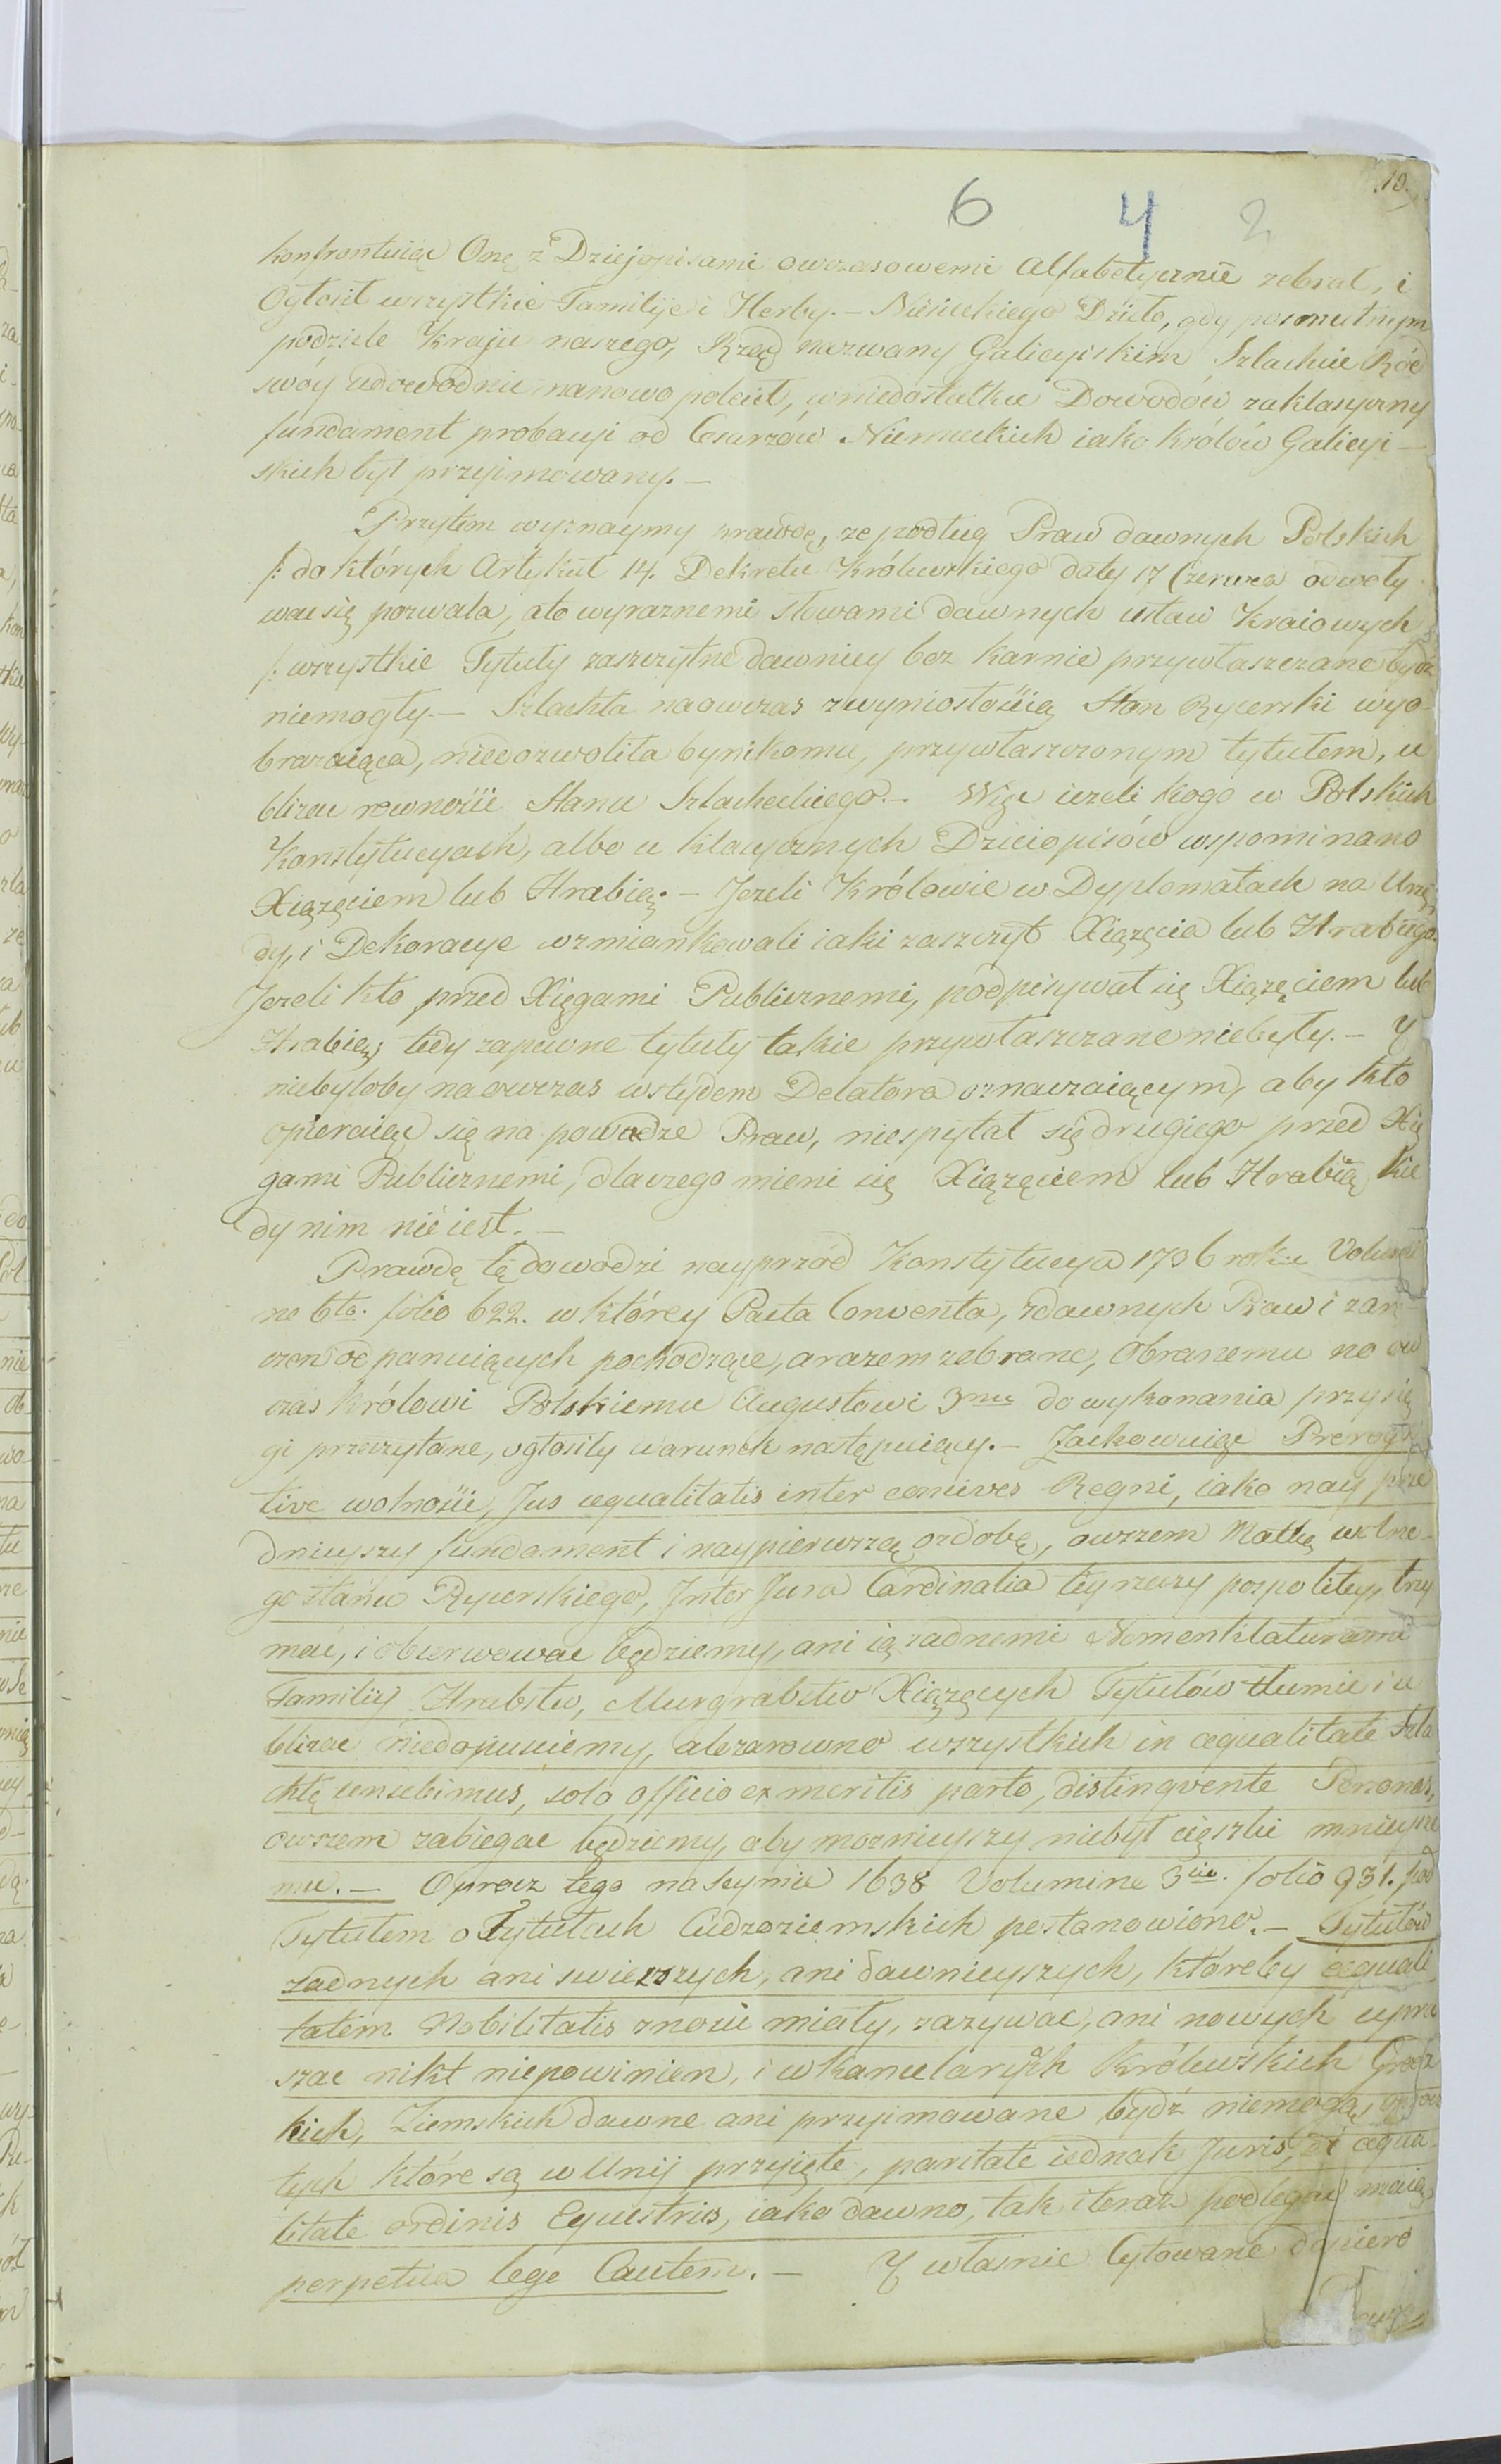 10.
6 4 2
konfrontuiąc Onę z Dziejopisami owczasowemi Alfabetycznie zebrał, i
Ogłosił wszystkie Familije i Herby. — Niesieckiego Dzieło, gdy po smutnym
podziele Kraju naszego, Rząd nazwany Galicyiskim Szlachcie Ród
swóy udowodnić nanowo polecił, w niedostatku Dowodów za klasyczny
fundament probacyi od Cesarzów Niemieckich iako Królów Galicyi-
skich był przyimowany. —
Przytem wyznaymy prawdę, że podług Praw dawnych Polskich
/: do których Artykuł 14. Dekretu Królewskiego daty 17 Czerwca odwoły
wać się pozwala, a to wyraznemi słowami dawnych ustaw Kraiowych :/
/: wszystkie Tytuły zaszczytne dawniey bez karnie przywłaszczane bydź
niemogły. — Szlachta naowczas z wyniosłością Stan Rycerski wyo-
brażaiąca, niedozwoliła by nikomu, przywłaszczonym tytułem, u
bliżać rowności Stanu Szlacheckiego. — Więc ieżeli kogo w Polskich
Konstytucyach, albo u klasycznych Dzieiopisów wspominano
Xiążęciem lub Hrabią; — Jeżeli Królowie w Dyplomatach na Urzę
dy, i Dekoracye wzmiankowali iaki zaszczyt Xiążęcia lub Hrabiego.
Jeżeli kto przed Xięgami Publicznemi, podpisywał się Xiążęciem lub
Hrabią; tedy zapewne tytuły takie przywłaszczane niebyły. — Y
niebyłoby naowczas wstydem Delatora oznaczaiącym, aby kto
opieraiąc się na powadze Praw, niespytał się drugiego przed Xię
gami Publicznemi, dlaczego mieni się Xiążęciem lub Hrabią kie
dy nim nie iest. —
Prawdę tę dowodzi nayprzód Konstytucya 1736 roku Volumi
ne 6to. folio 622. w którey Pacta Conventa, z dawnych Praw i zarę
czeń od panuiących pochodzące, a razem zebrane, Obranemu na ow
czas Królowi Polskiemu Augustowi 3mu do wykonania przysię
gi przeczytane, ogłosiły warunek następuiący. — Zachowuiąc Preroga
tivę wolności, Jus aequalitatis inter concives Regni, iako nay prze
dnieyszy fundament i naypierwszą ozdobę, owszem Matkę wolne-
go stanu Rycerskiego, Inter Jura Cardinalia téy rzeczy pospolitey trzy
mać, i obserwować będziemy, ani ią zadnemi Nomenklaturami
Familiy Hrabstw, Murgrabstw Xiążęcych Tytułów tłumić i u
bliżać niedopuściemy, ale zarowno wszystkich in aequalitate Szla
chtę censebimus, solo officio ex meritis parto, distingvente Personas,
owszem zabiegać będziemy, aby moznieyszy niebył cięszki mnieysze
mu. — Oprócz tego na Seymie 1638 Volumine 3tio. folio 931. pod
Tytułem o Tytułach Cudzoziemskich postanowiono. — Tytułów
żadnych ani swieższych, ani dawnieyszych, któreby aequali
tatem Nobilitatis znosić miały, zażywać, ani nowych upra
szać nikt niepowinien, i w kancelaryach Królewskich Grodz
kich, Ziemskich dawne ani przyimowane bydź niemogą, oprócz
tych które są w Unij przyięte, paritate iednak Juris, et aequa-
litate ordinis Equestris, iako dawno, tak i teraz podlegać maią,
perpetua lege Cautem. — Y własnie Cytowane dopiero